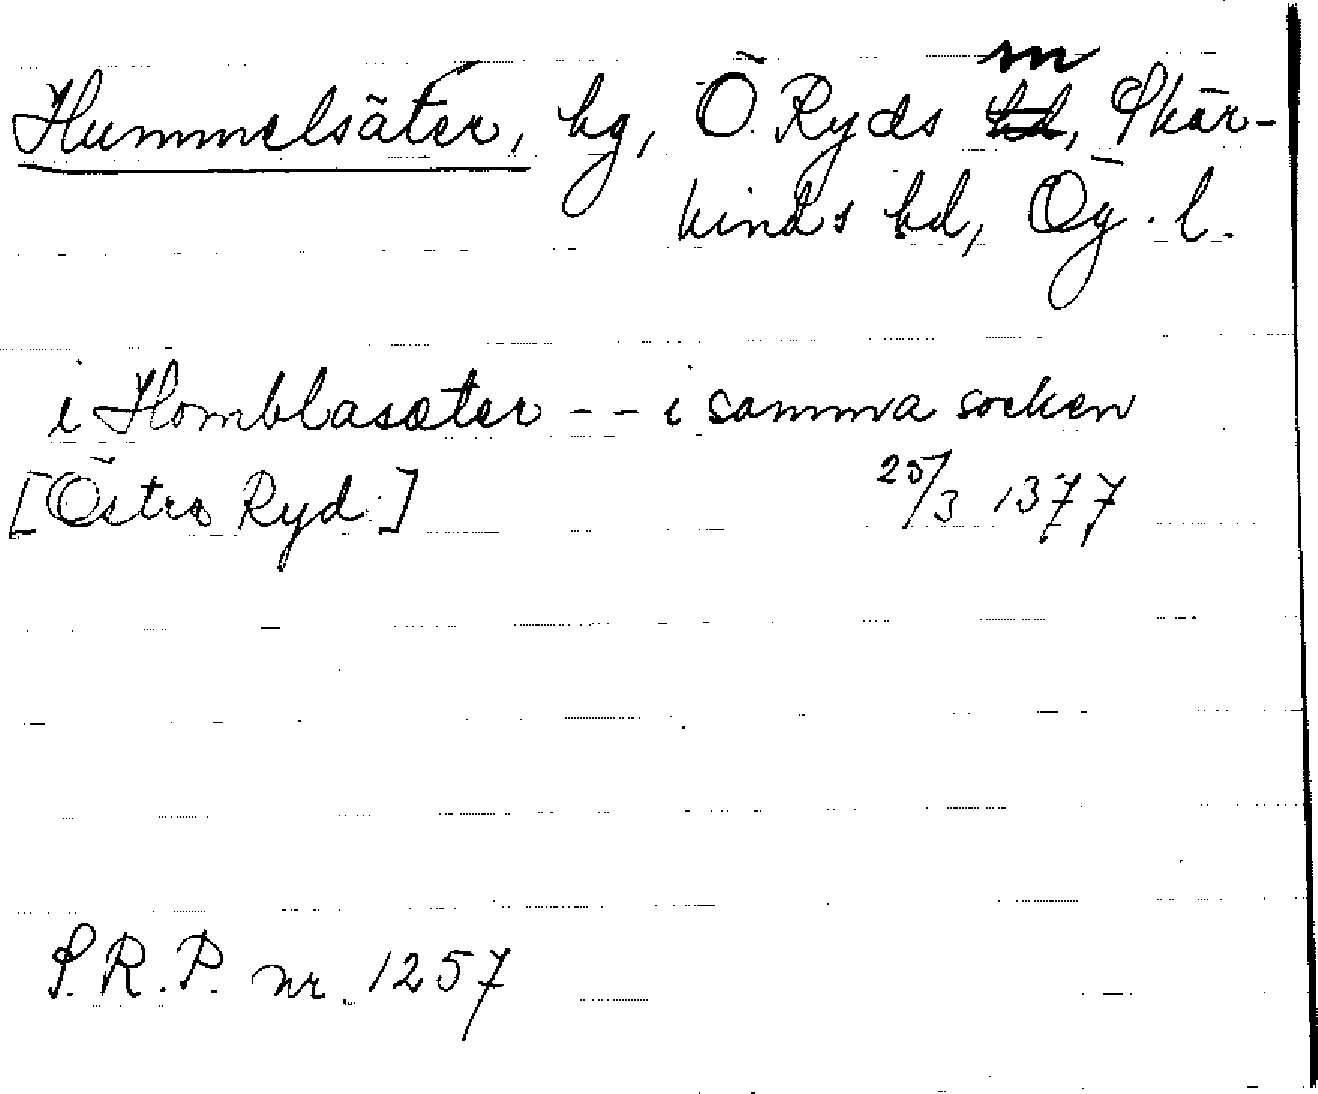 Hummelsäter, hg, Ö. Ryds sn, Skär-
kinds hd, Ög. l.
i Homblasæter -- i samma socken
[Östra Ryd] 25/3 1377
S.R.P. nr. 1257